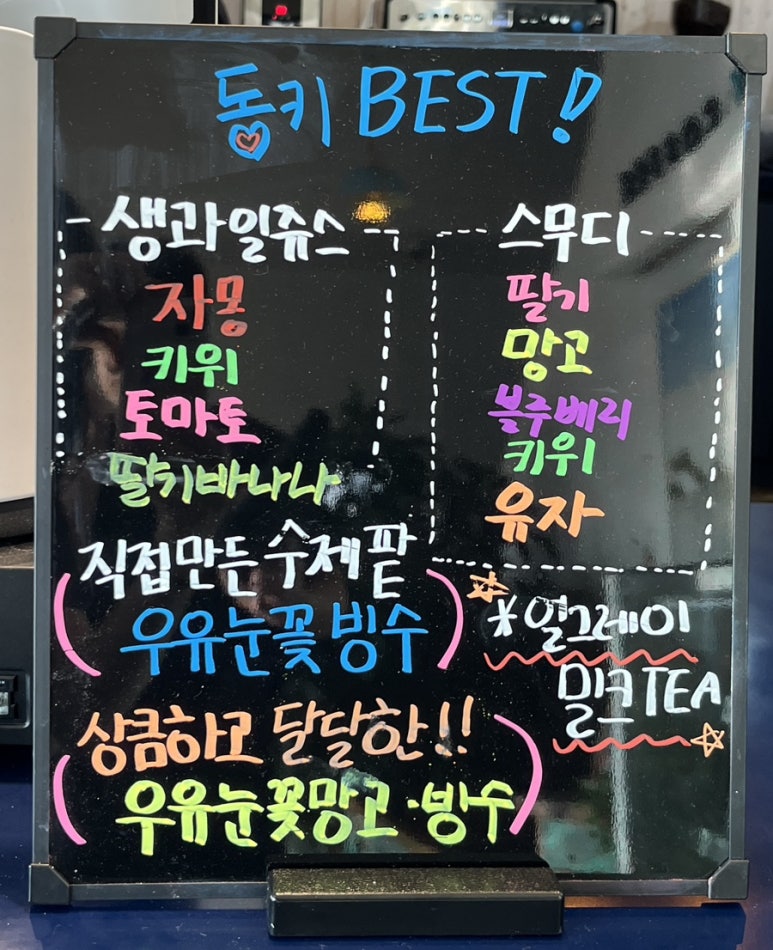 동키 BEST!
생과일쥬스
자몽
키위
토마토
딸기바나나
스무디
딸기
망고
블루베리
키위
유자
직접만든 수제 팥
우유눈꽃 빙수
*얼그레이
밀크TEA
상큼하고 달달한!!
우유눈꽃망고·빙수